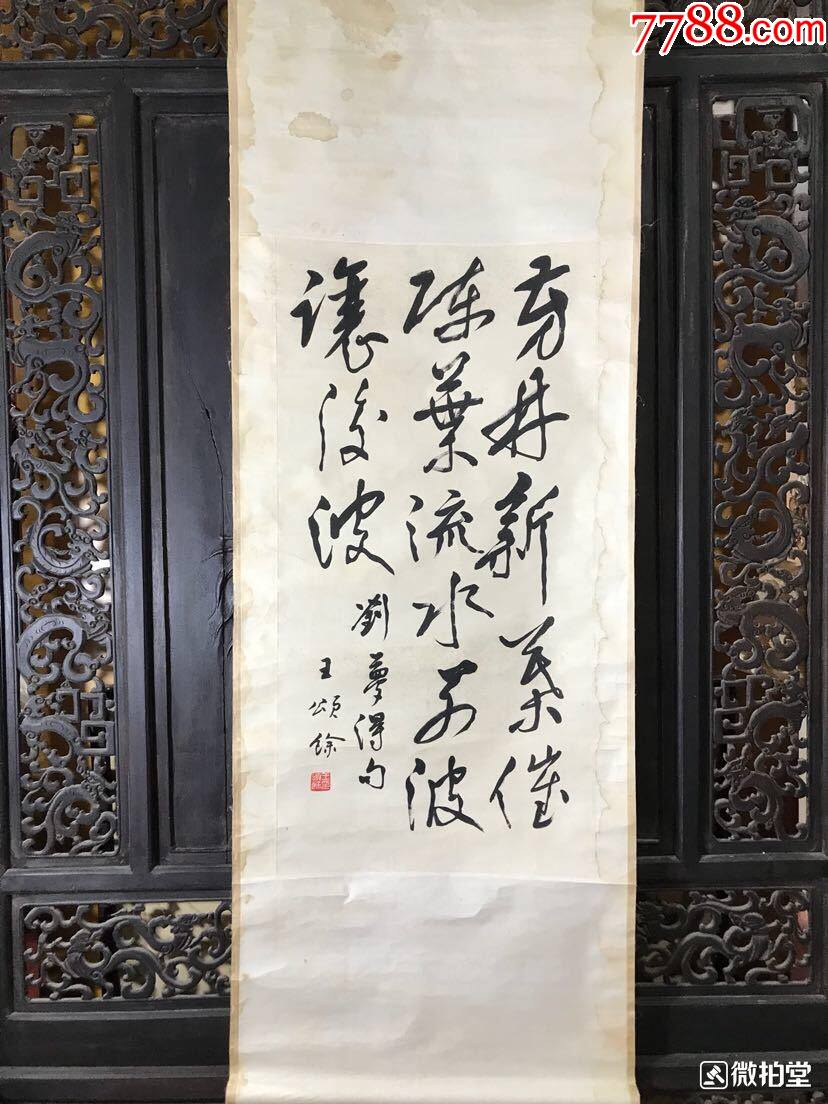 芳林新葉催
陳葉流水前波
讓後波
劉夢得句
王頌餘
7788.com
微拍堂